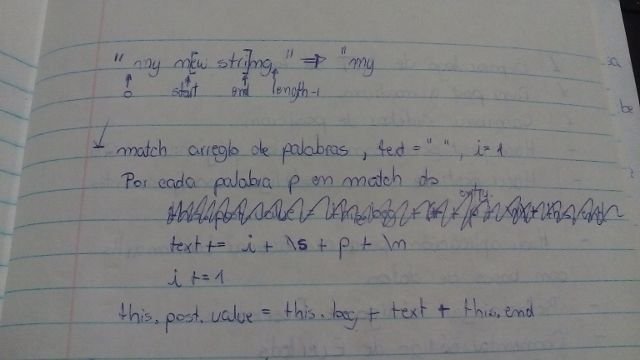 " my new string " => "my
0 start end length-1
match arreglo de palabras, text = " ", i = 1
Por cada palabra p en match do
text += i + \s + p + \n
i += 1
this.post.value = this.beg + text + this.end